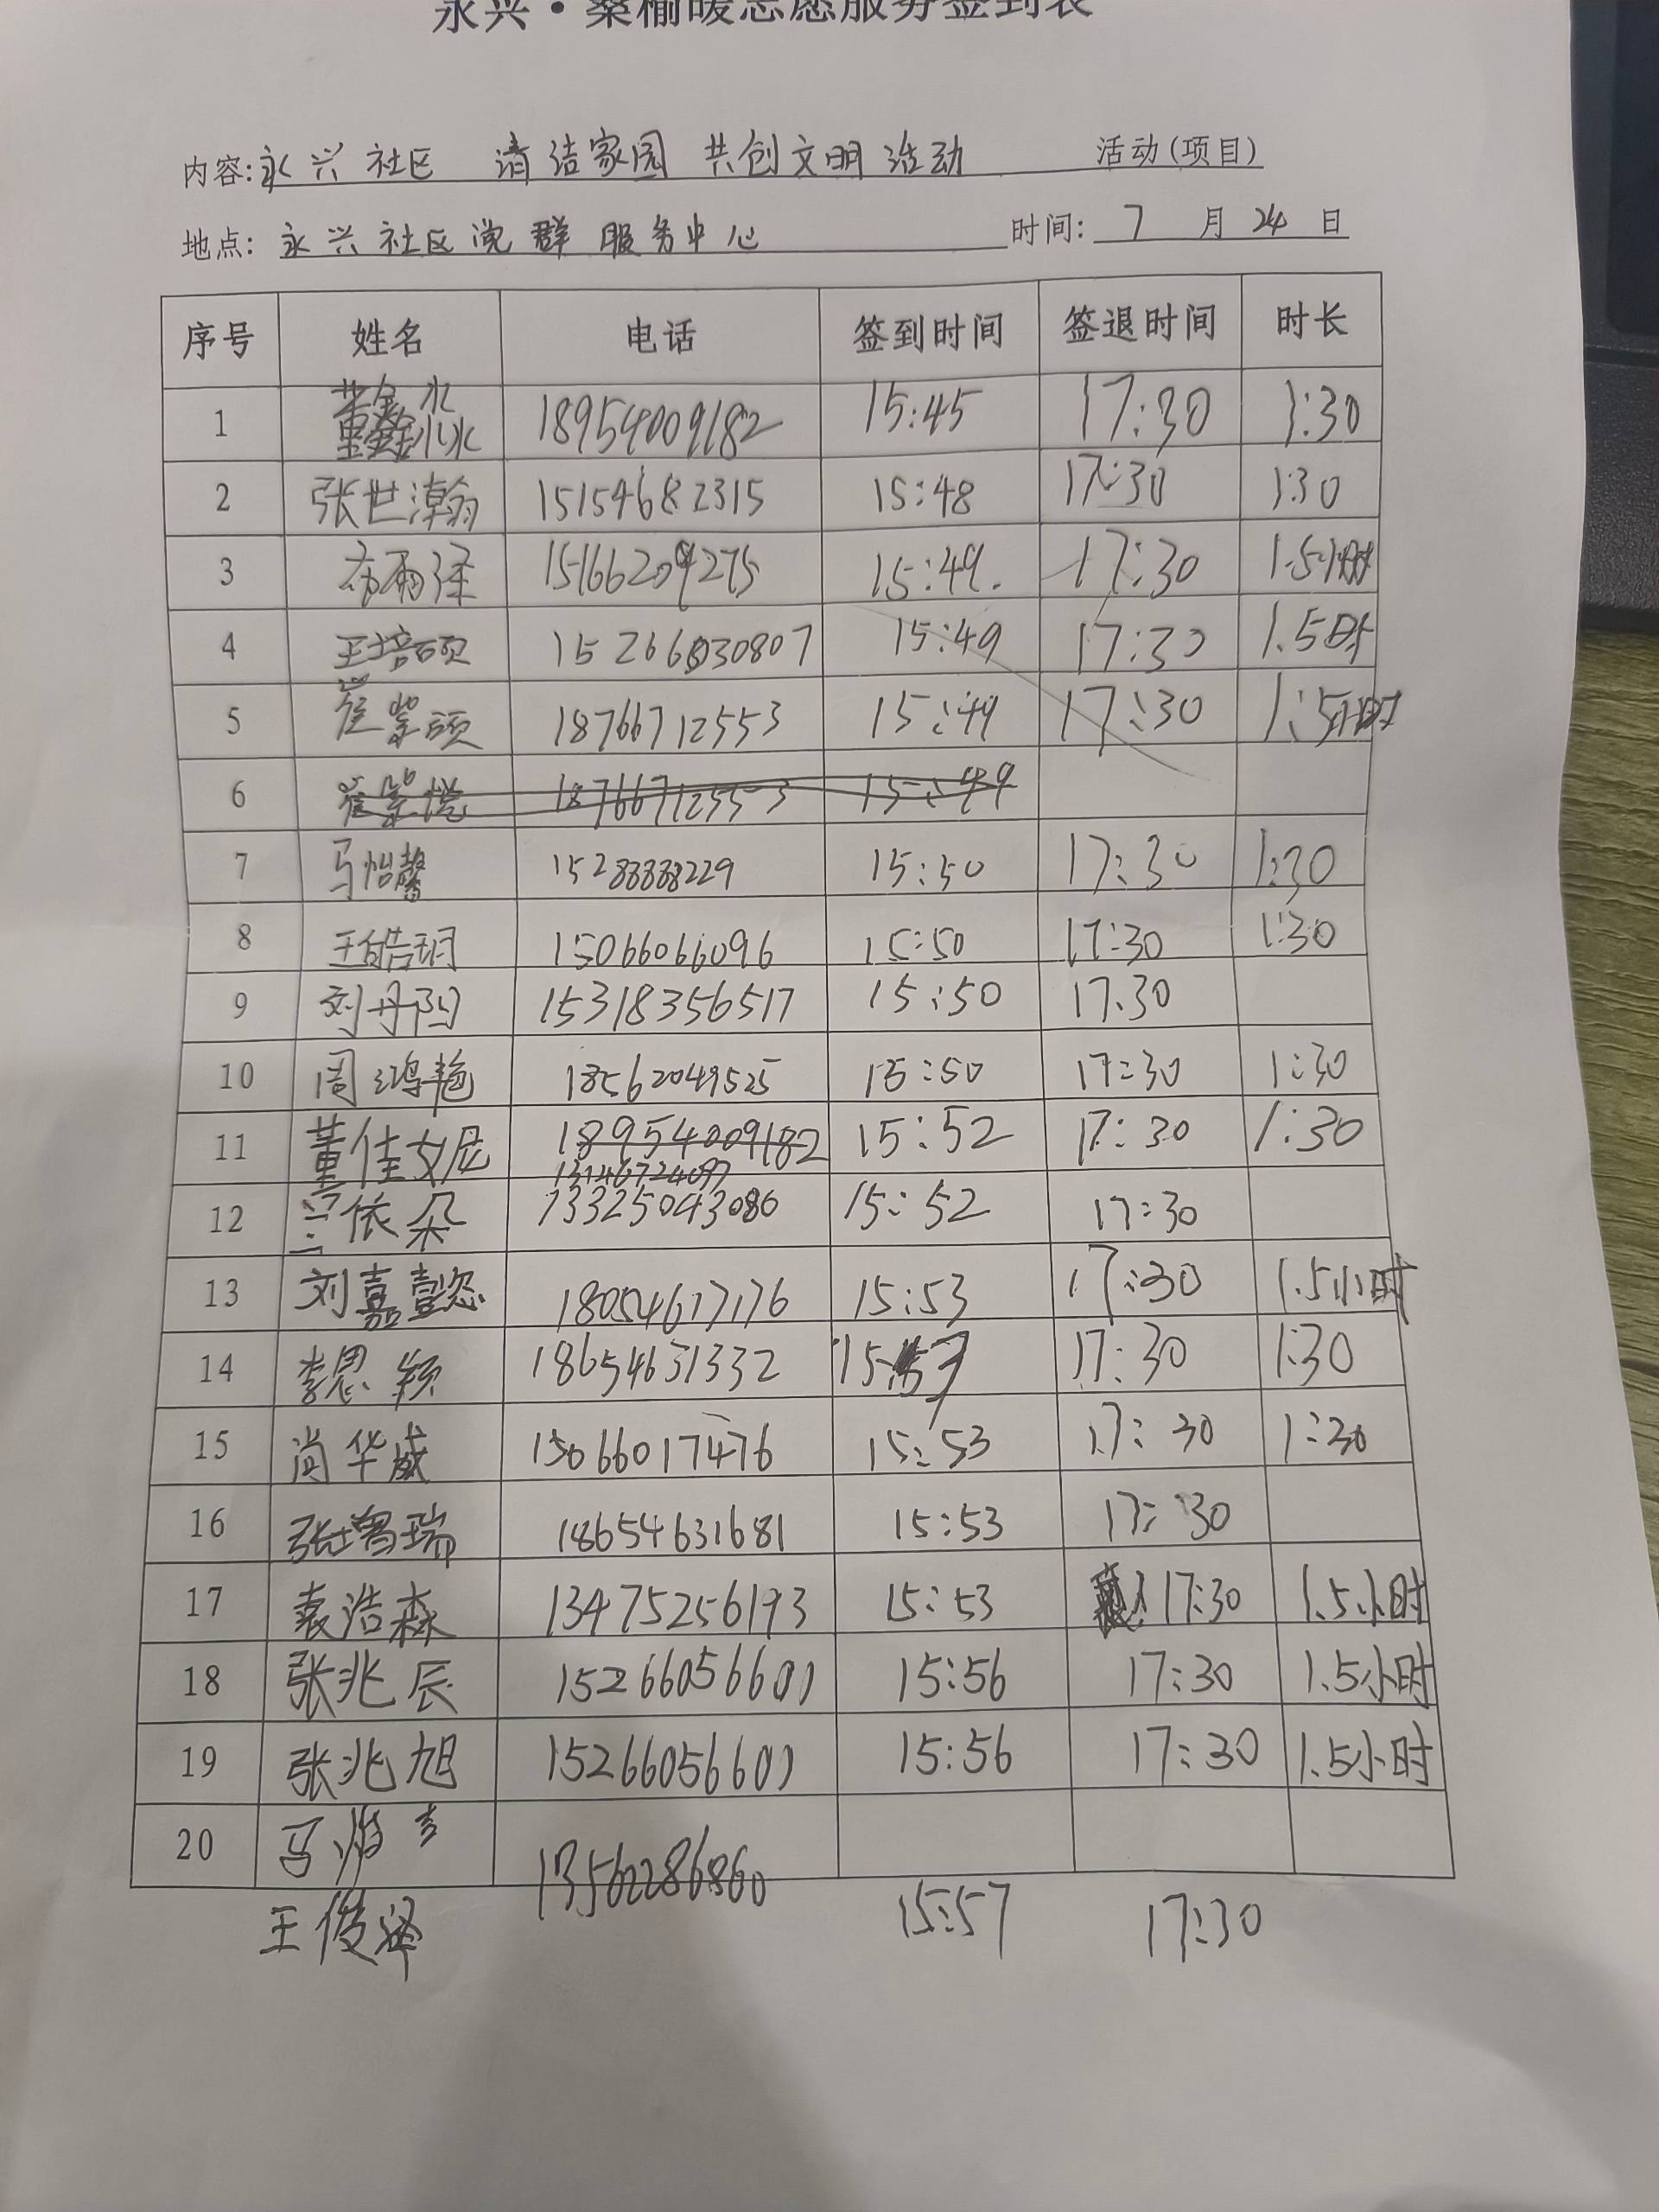 永兴·桑榆暖志愿服务签到表
内容:永兴社区 清洁家园 共创文明活动 活动(项目)
地点: 永兴社区党群服务中心 时间: 7 月 24 日
序号 姓名 电话 签到时间 签退时间 时长
1 董鑫水 18954009182 15:45 17:30 1:30
2 张世瀚 15154682315 15:48 17:30 1:30
3 15166209275 15:49. 17:30 1.5小时
4 王培硕 15266030807 15:49 17:30 1.5时
5 崔紫硕 18766712553 15:49 17:30 1:5小时
6 崔紫悦 18766712553 15:49
7 马怡馨 15288888229 15:50 17:30 1:30
8 王皓玥 15066066096 15:50 17:30 1:30
9 刘丹阳 15318356517 15:50 17.30
10 周鸿艳 18562049525 15:50 17:30 1:30
11 董佳妮 18954009182 15:52 17:30 1:30
13146724097
12 兰依朵 13325043080 15:52 17:30
13 刘嘉懿 18054617176 15:53 17:30 1.5小时
14 李思颖 18654631332 15:53 17:30 1:30
15 尚华威 15066017476 15:53 17:30 1:30
16 张增瑞 18654631681 15:53 17:30
17 袁浩森 13475256193 15:53 17:30 1.5小时
18 张兆辰 15266056601 15:56 17:30 1.5小时
19 张兆旭 15266056601 15:56 17:30 1.5小时
20 马
王俊泽 13562286860 15:57 17:30